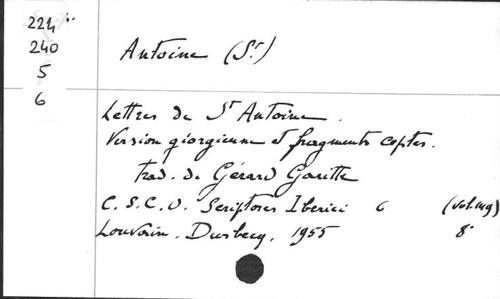 224
240
5
6
Antoine (St)
Lettres de St Antoine.
Version géorgienne et fragments coptes.
trad. de Gérard Garitte
C. S. C. O. Scriptores Iberici 6 (vol. 149)
Louvain. Durbecq, 1955 8°